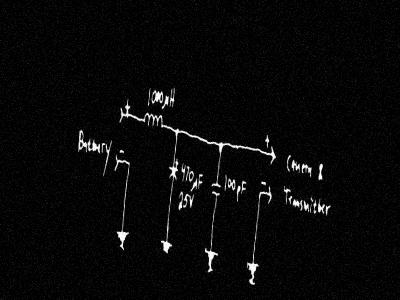 1000µH
+
+
Battery
-
+
470µF
25V
100pF
Camera &
-
Transmitter